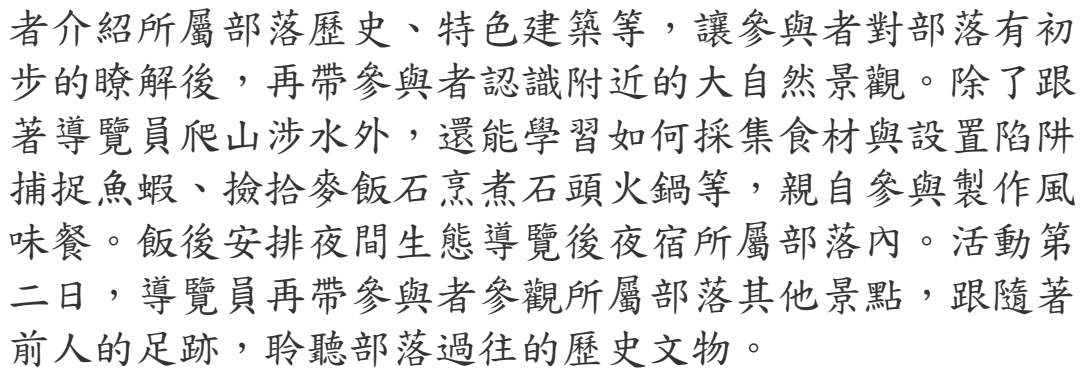 者介紹所屬部落歷史、特色建築等，讓參與者對部落有初
步的瞭解後，再帶參與者認識附近的大自然景觀。除了跟
著導覽員爬山涉水外，還能學習如何採集食材與設置陷阱
捕捉魚蝦、撿拾麥飯石烹煮石頭火鍋等，親自參與製作風
味餐。飯後安排夜間生態導覽後夜宿所屬部落內。活動第
二日，導覽員再帶參與者參觀所屬部落其他景點，跟隨著
前人的足跡，聆聽部落過往的歷史文物。